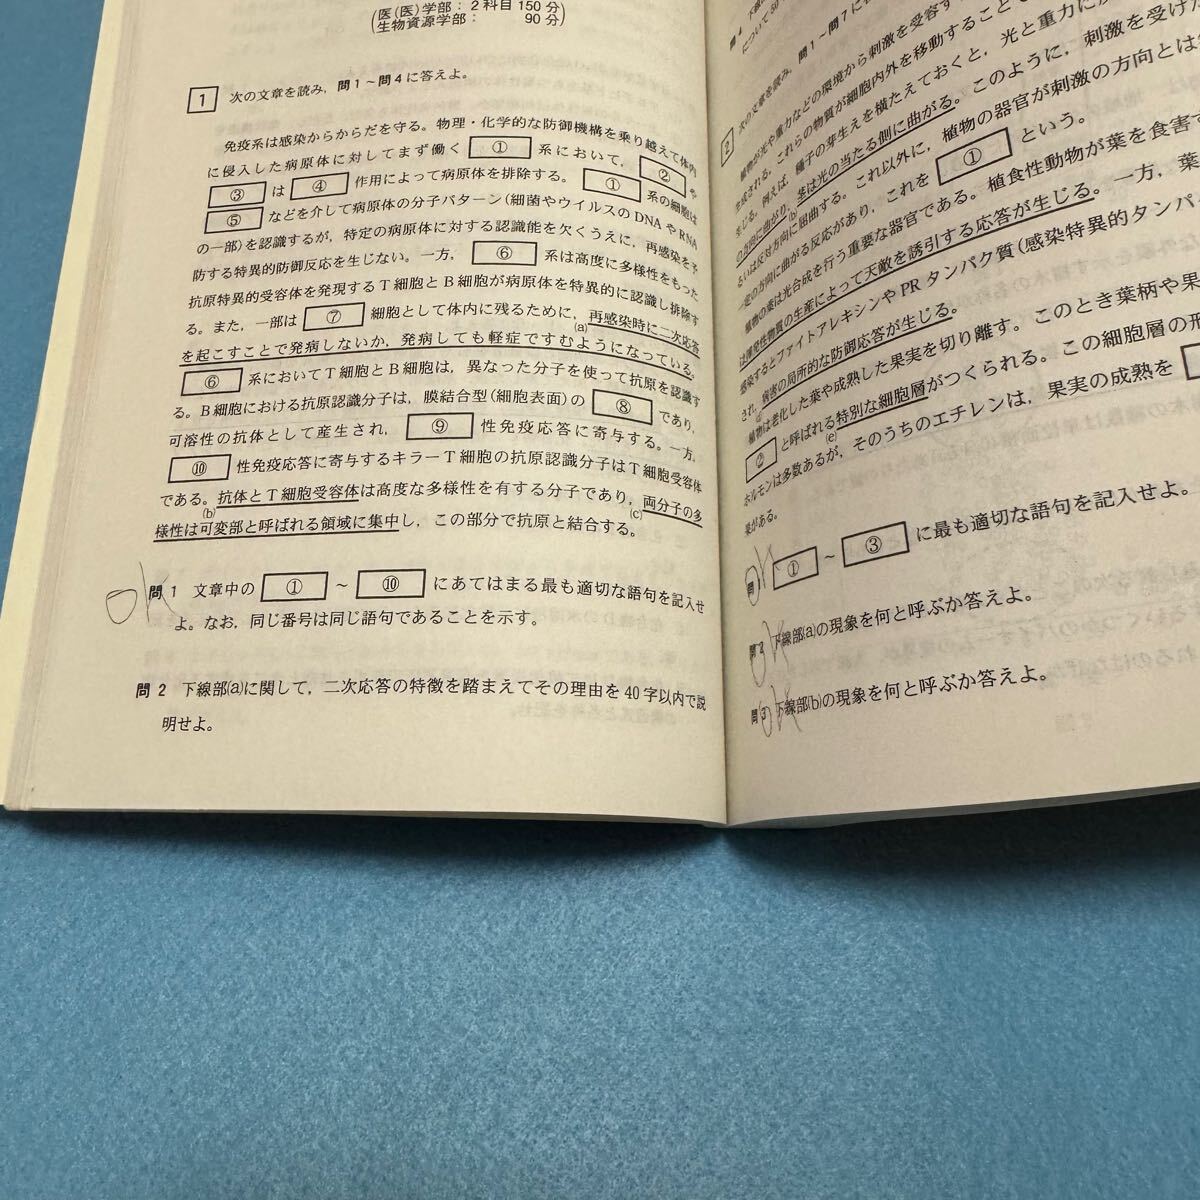 (医(医)学部：2科目150分)
(生物資源学部：　　90分)
1　次の文章を読み，問1～問4に答えよ。
免疫系は感染からからだを守る。物理・化学的な防御機構を乗り越えて体内
に侵入した病原体に対してまず働く ① 系において， ② や
③ は ④ 作用によって病原体を排除する。 ① 系の細胞は
⑤ などを介して病原体の分子パターン(細菌やウイルスのDNAやRNA
の一部)を認識するが，特定の病原体に対する認識能を欠くうえに，再感染を予
防する特異的防御反応を生じない。一方， ⑥ 系は高度に多様性をもった
抗原特異的受容体を発現するT細胞とB細胞が病原体を特異的に認識し排除す
る。また，一部は ⑦ 細胞として体内に残るために，(a)再感染時に二次応答
を起こすことで発病しないか，発病しても軽症ですむようになっている。
⑥ 系においてT細胞とB細胞は，異なった分子を使って抗原を認識す
る。B細胞における抗原認識分子は，膜結合型(細胞表面)の ⑧ であり，
可溶性の抗体として産生され， ⑨ 性免疫応答に寄与する。一方，
⑩ 性免疫応答に寄与するキラーT細胞の抗原認識分子はT細胞受容体
である。(b)抗体とT細胞受容体は高度な多様性を有する分子であり，(c)両分子の多
様性は可変部と呼ばれる領域に集中し，この部分で抗原と結合する。
ok
問1　文章中の ① ～ ⑩ にあてはまる最も適切な語句を記入せ
よ。なお，同じ番号は同じ語句であることを示す。
問2　下線部(a)に関して，二次応答の特徴を踏まえてその理由を40字以内で説
明せよ。
問4　下線
について50
2　次の文章を読み，問1～問7に
植物が光や重力などの環境から刺激を受容す
生成される。これらの物質が細胞内外を移動することで
生じる。例えば，種子の芽生えを横たえておくと，光と重力に
の方向に曲がり，(b)茎は光の当たる側に曲がる。このように，刺激を受けた
るいは反対方向に屈曲する。これ以外に，植物の器官が刺激の方向とは
定の方向に曲がる反応があり，これを ① という。
植物の葉は光合成を行う重要な器官である。植食性動物が葉を食害す
は揮発性物質の生産によって天敵を誘引する応答が生じる。一方，葉
感染するとファイトアレキシンやPRタンパク質(感染特異的タンパ
され，(d)病害の局所的な防御応答が生じる。
植物は老化した葉や成熟した果実を切り離す。このとき葉柄や果
② と呼ばれる(e)特別な細胞層がつくられる。この細胞層の形
ホルモンは多数あるが，そのうちのエチレンは，果実の成熟を
果がある。
ok
問1　① ～ ③ に最も適切な語句を記入せよ。
ok
問2　下線部(a)の現象を何と呼ぶか答えよ。
ok
問3　下線部(b)の現象を何と呼ぶか答えよ。